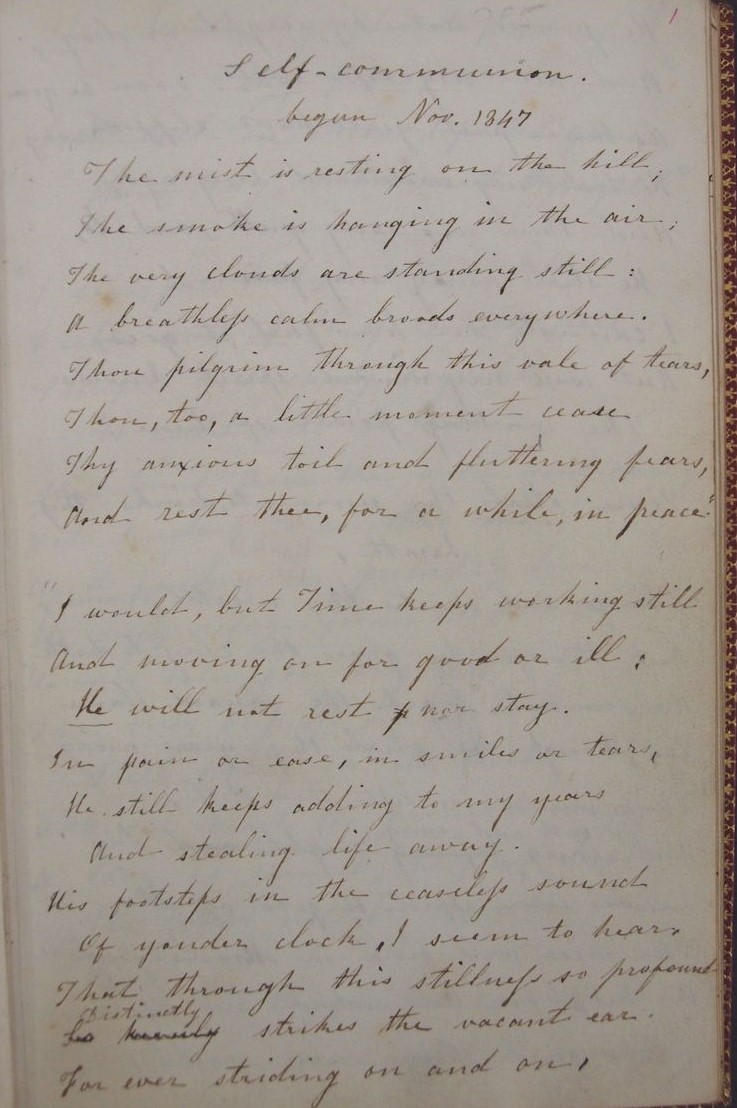 1
Self-communion.
begun Nov. 1847
The mist is resting on the hill;
The smoke is hanging in the air;
The very clouds are standing still:
A breathless calm broods everywhere.
Thou pilgrim through this vale of tears,
Thou, too, a little moment cease
Thy anxious toil and fluttering fears,
And rest thee, for a while, in peace"
"I would, but Time keeps working still
And moving on for good or ill:
He will not rest nor stay.
In pain or ease, in smiles or tears,
He still keeps adding to my years
And stealing life away.
His footsteps in the ceaseless sound
Of yonder clock, I seem to hear,
That through this stillness so profound
Distinctly
strikes the vacant ear.
For ever striding on and on,